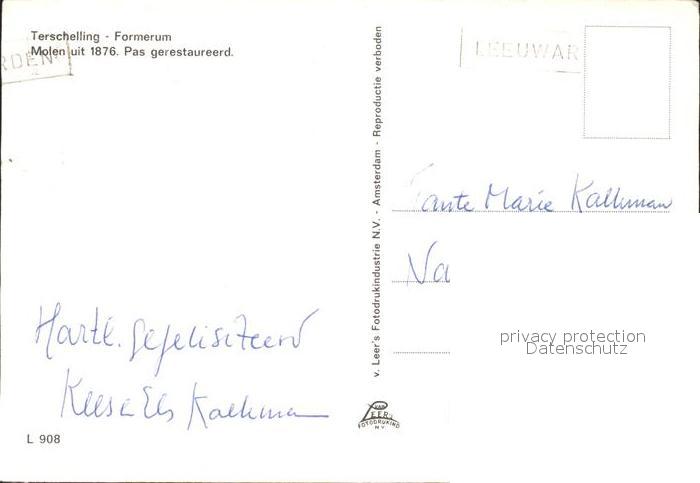 Terschelling - Formerum
Molen uit 1876. Pas gerestaureerd.
RDEN
LEEUWAR
v. Leer's Fotodrukindustrie N.V. - Amsterdam - Reproductie verboden
Tante Marie Kalkman
Na
Hartl. gefelisiteerd
Kees en Els Kalkman
privacy protection
Datenschutz
VAN
LEER's
FOTODRUKIND
N.V.
L 908